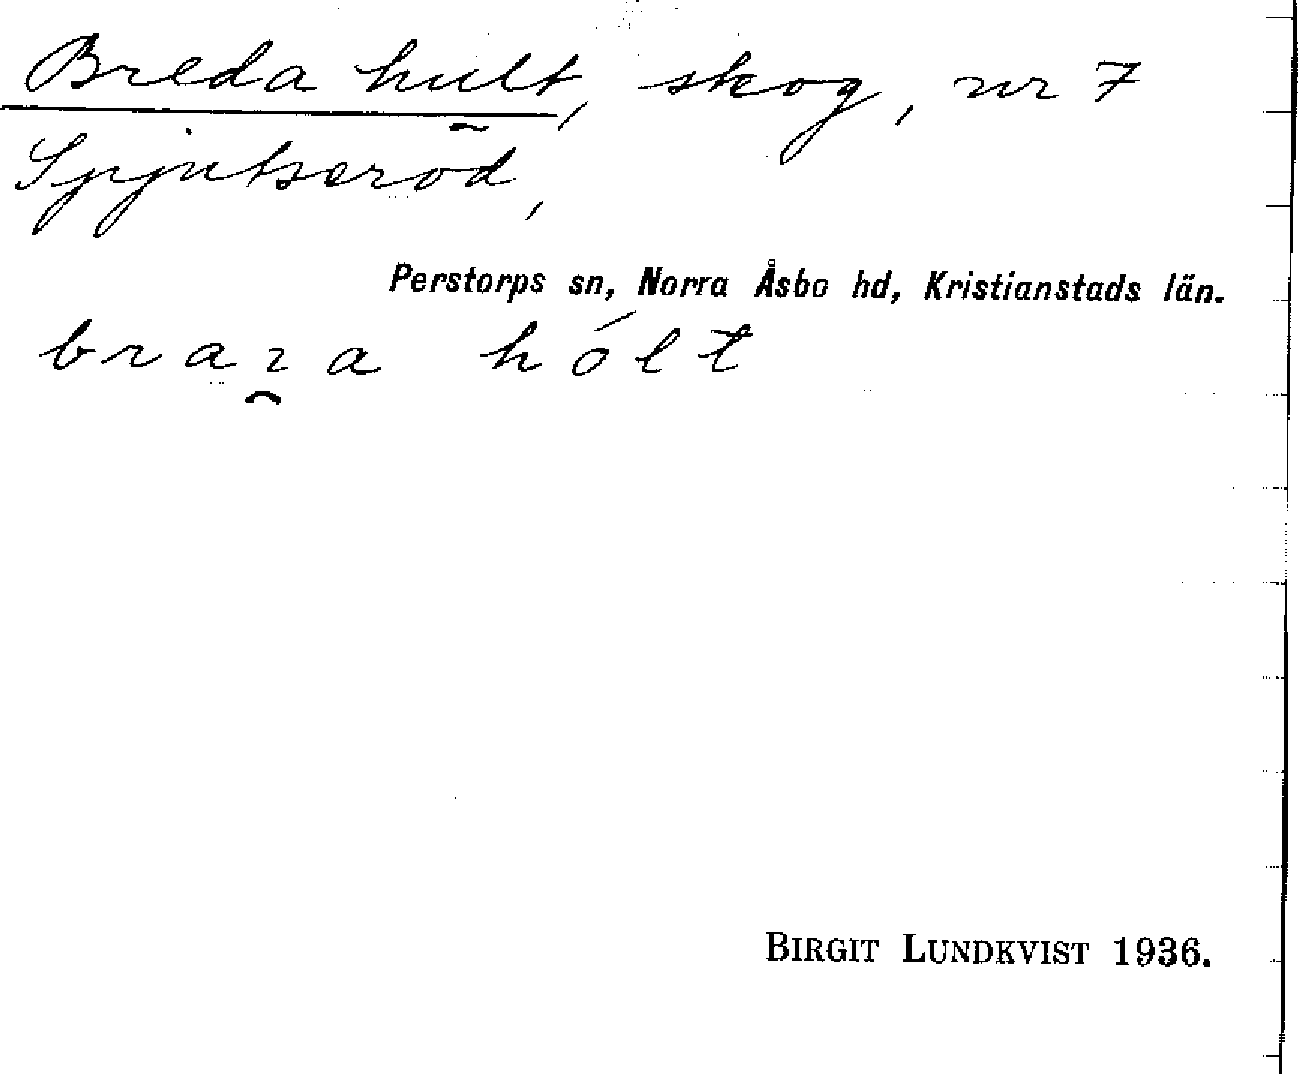 Breda hult, skog, nr 7
Spjutseröd,
Perstorps sn, Norra Åsbo hd, Kristianstads län.
braɿ̯a hólt
BIRGIT LUNDKVIST 1936.